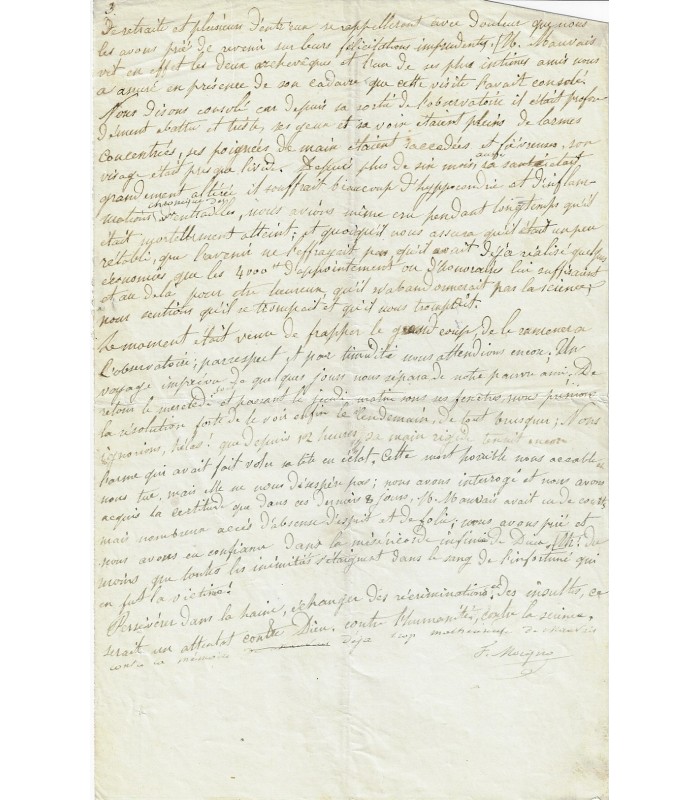 3.
De retraite et plusieurs d'entr'eux se rappelleront avec douleur que nous
les avons prié de revenir sur leurs félicitations imprudentes. M. Mauvais
vit en effet les deux archevêques et l'un de ses plus intimes amis nous
a assuré en présence de son cadavre que cette visite l'avait consolé.
Nous disons consolé car depuis sa sortie de l'observatoire il était profon
dément abattu et triste, ses yeux et sa voix étaient pleins de larmes
concentrées, ses poignées de main étaient saccadées et fiévreuses, son
visage était presque livide. Depuis plus de six mois aussi sa santé était
grandement altérée il souffrait beaucoup d'hyppocondrie et d'inflam-
mations chronique des entrailles, nous avions même cru pendant longtemps qu'il
était mortellement atteint; et quoiqu'il nous assura qu'il était un peu
rétabli, que l'avenir ne l'effrayait pas, qu'il avait déjà réalisé quelques
économies, que les 4000 d'appointement ou d'honoraires lui suffiraient
et au delà pour être heureux, qu'il n'abandonnerait pas la science,
nous sentions qu'il se trompait et qu'il nous trompait.
Le moment était venu de frapper le grand coup, de le ramener à
l'observatoire; par respect et par timidité nous attendions encore. Un
voyage imprévu de quelques jours nous sépara de notre pauvre ami. De
retour le mercredi et passant le jeudi matin sous ses fenêtres, nous prenions
la résolution forte de le voir enfin le lendemain, de tout brusquer; Nous
ignorions, hélas! que depuis 12 heures, sa main rigide tenait encore
l'arme qui avait fait voler sa tête en éclat. Cette mort possible nous accable
nous tue, mais elle ne nous désespère pas; nous avons interrogé et nous avons
acquis la certitude que dans ces derniers 8 jours, M. Mauvais avait eu de courts
mais nombreux accès d'absence d'esprit et de folie; nous avons prié et
nous avons eu confiance dans la miséricorde infinie de Dieu. du
moins que toutes les inimitiés s'éteignent dans le sang de l'infortuné qui
en fut la victime!
Persévérer dans la haine, échanger des récriminations et des insultes, ce
serait un attentat contre Dieu, contre l'humanité, contre la science,
contre sa mémoire déjà trop
F. Moigno